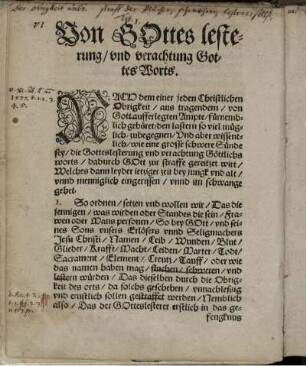 Von GOttes leste-
rung/vnd verachtung Got-
tes Worts.
NACH dem einer jeden Christlichen
Obrigkeit/aus tragendem/von
Gott aufferlegten Ampte/fürnemb-
lich gebüret/den lastern so viel müg-
lich zubegegnen/Vnd aber wissent-
lich/wie eine grosse schwere Sünde
sey/die Gotteslesterung vnd verachtung Göttlichs
worts/dadurch GOtt zur straffe gereitzet wirt/
Welches dann leyder jetziger zeit bey jungk vnd alt/
vnnd menniglich eingerissen/vnnd im schwange
gehet.
So ordnen/setzen vnd wollen wir/Das die
jenigen/was wirden oder Standes die sein/Fra-
wen oder Mans personen/So bey GOtt/vnd sei-
nes Sons vnsers Erlösers vnnd Seligmachers
Jesu Christi/Namen/Leib/Wunden/Blut/
Glieder/Krafft/Macht/Leiden/Marter/Todt/
Sacrament/Element/Creutz/Tauff/oder wie
das namen haben mag/fluchen/schweren/vnd
lestern würden/Das dieselben durch die Obrig-
keit des orts/da solchs geschehen/vnnachlessig
vnd ernstlich sollen gestraffet werden/Nemblich
also/Das der Gotteslesterer erstlich in das ge-
fengknus